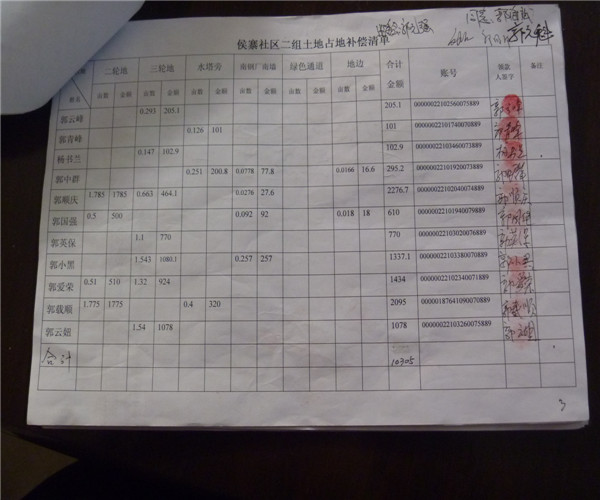 侯寨社区二组土地占地补偿清单
二轮地 三轮地 水塔旁 南钢厂南墙 绿色通道 地边 合计 账号 领款 备注
姓名 亩数 金额 亩数 金额 亩数 金额 亩数 金额 亩数 金额 亩数 金额 金额 人签字
郭云峰 0.293 205.1 205.1 00000022102560075889
郭青峰 0.126 101 101 00000022101740070889
杨书兰 0.147 102.9 102.9 00000022103460073889
郭中群 0.251 200.8 0.0778 77.8 0.0166 16.6 295.2 00000022101920073889
郭顺庆 1.785 1785 0.663 464.1 0.0276 27.6 2276.7 00000022102040074889
郭国强 0.5 500 0.092 92 0.018 18 610 00000022101940079889
郭英保 1.1 770 770 00000022103020076889
郭小黑 1.543 1080.1 0.257 257 1337.1 00000022103380070889
郭爱荣 0.51 510 1.32 924 1434 00000022102340071889
郭载顺 1.775 1775 0.4 320 2095 00000187641090070889
郭云妞 1.54 1078 1078 00000022103260075889
合计 10305
3